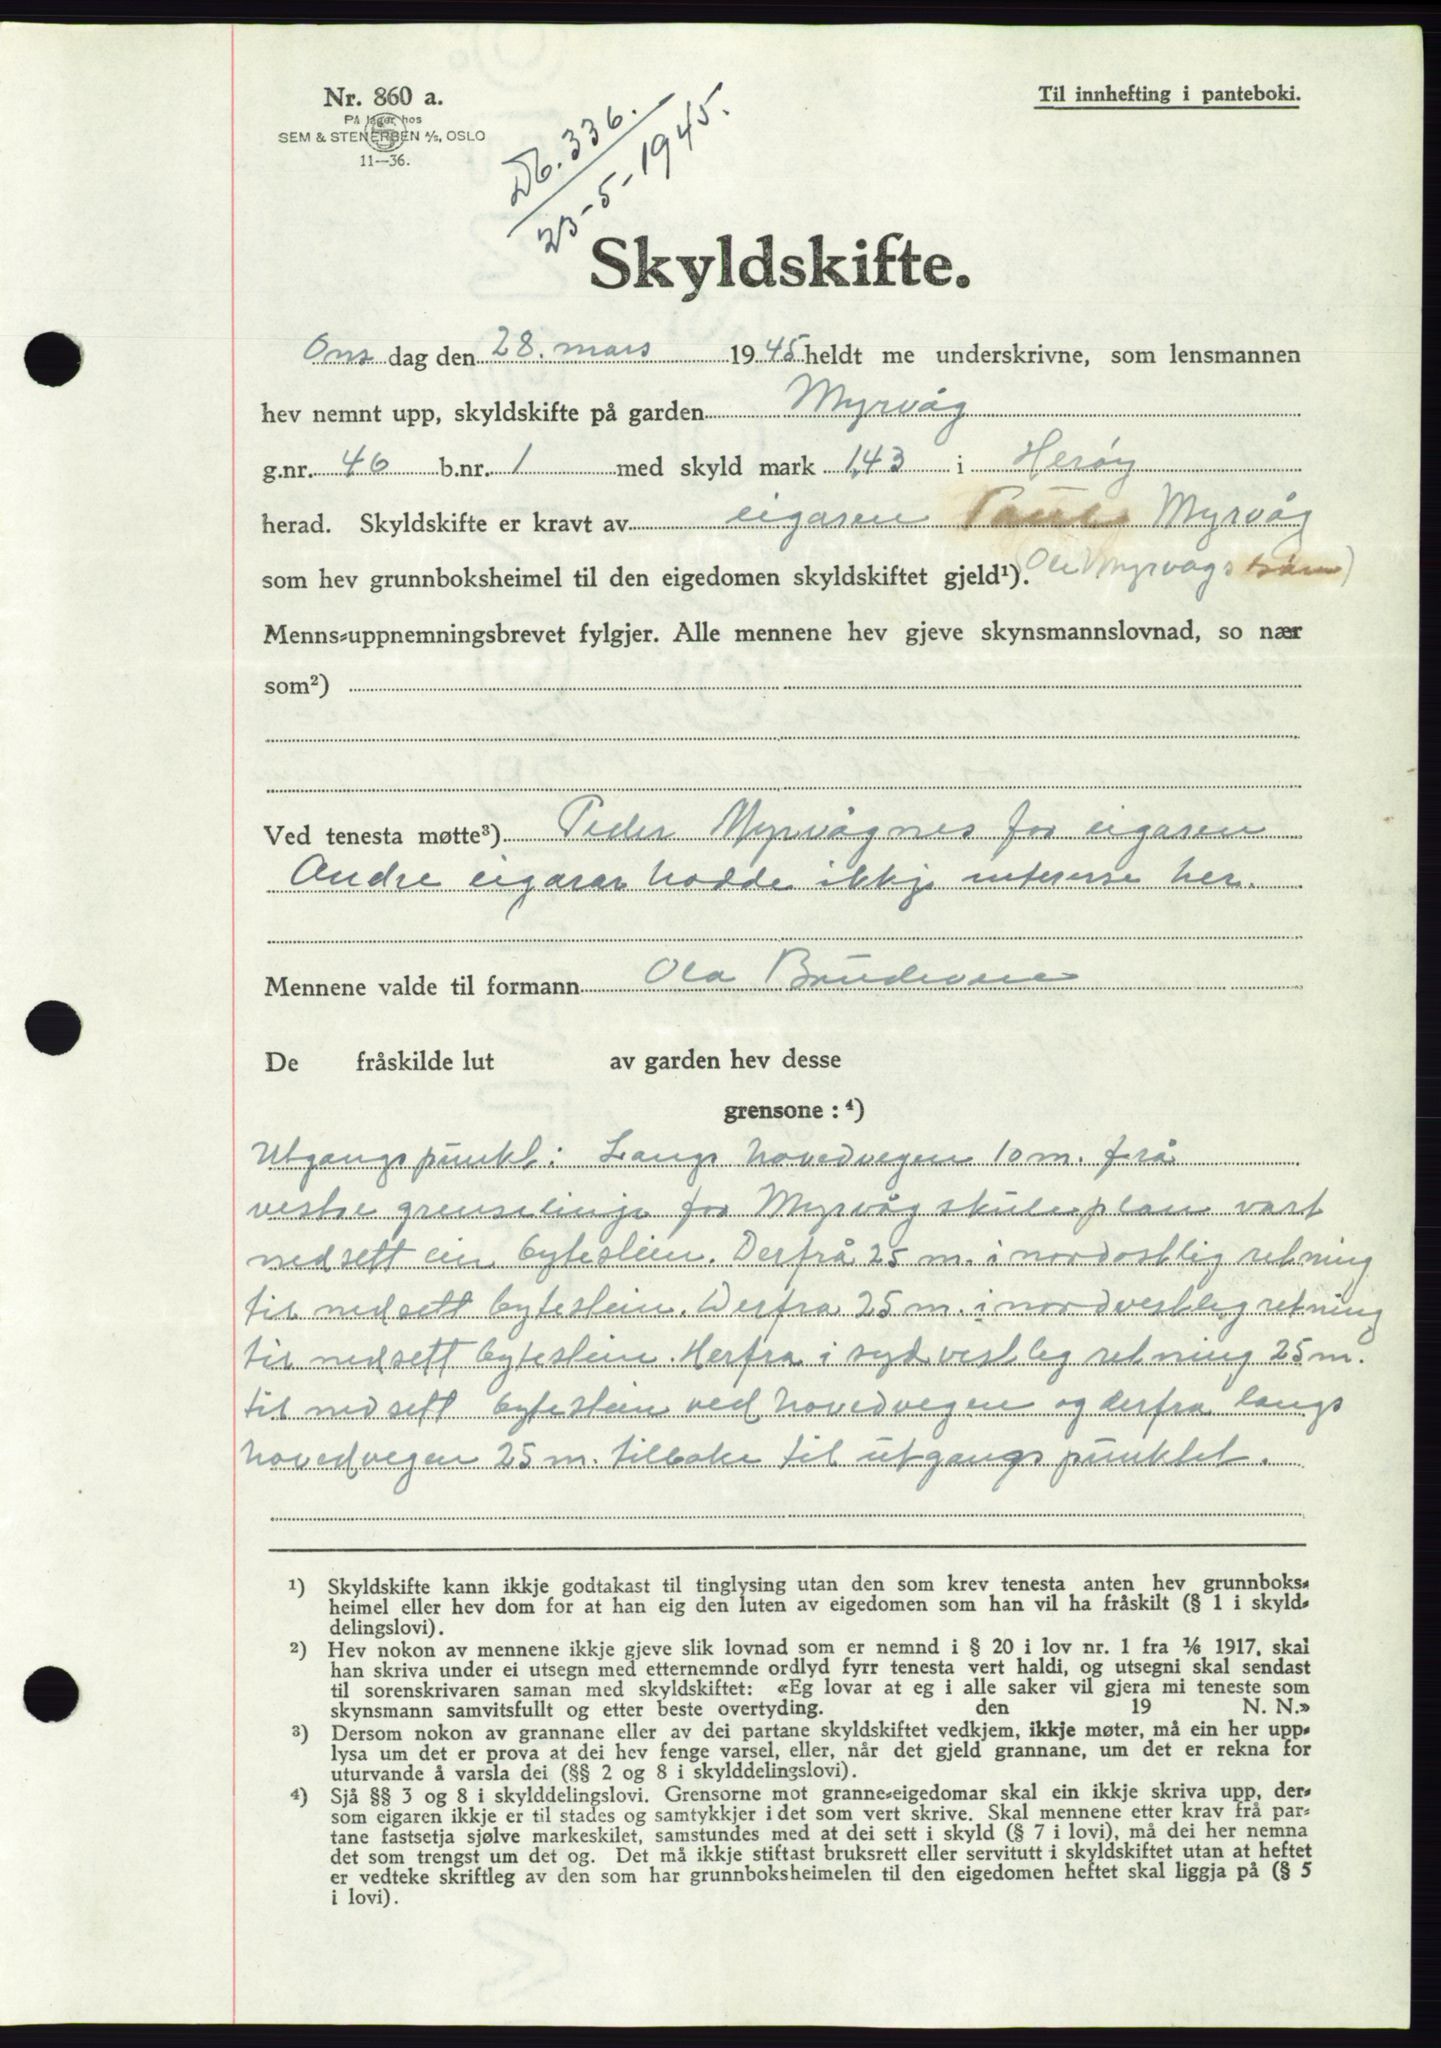 Nr. 860 a.
På lager hos
SEM & STENERSEN A/S, OSLO
11—36.
Til innhefting i panteboki.
Db. 336.
23-5-1945.
Skyldskifte.
Ons dag den 28. mars 1945 heldt me underskrivne, som lensmannen
hev nemnt upp, skyldskifte på garden Myrvåg
g.nr. 46 b.nr. 1 med skyld mark 1,43 i Herøy
herad. Skyldskifte er kravt av eigaren Myrvåg
som hev grunnboksheimel til den eigedomen skyldskiftet gjeld¹). (Ole Myrvågs
Menns-uppnemningsbrevet fylgjer. Alle mennene hev gjeve skynsmannslovnad, so nær
som²)
Ved tenesta møtte³) Peder Myrvågnes for eigaren
Andre eigarar hadde ikkje interesse her.
Mennene valde til formann Ola
De fråskilde lut av garden hev desse
grensone : ⁴)
Utgangspunkt: Langs hovedvegen 10 m. frå
vestre grenselinje for Myrvåg skuleplan vart
nedsett ein bytestein. Derfrå 25 m. i nordostlig retning
til nedsett bytestein. Derfra 25 m. i nordvestleg retning
til nedsett bytestein. Herfra i sydvestleg retning 25 m.
til nedsett bytestein ved hovedvegen og derfra langs
hovedvegen 25 m. tilbake til utgangspunktet.
¹) Skyldskifte kann ikkje godtakast til tinglysing utan den som krev tenesta anten hev grunnboks-
heimel eller hev dom for at han eig den luten av eigedomen som han vil ha fråskilt (§ 1 i skyld-
delingslovi).
²) Hev nokon av mennene ikkje gjeve slik lovnad som er nemnd i § 20 i lov nr. 1 fra 1/6 1917, skal
han skriva under ei utsegn med etternemnde ordlyd fyrr tenesta vert haldi, og utsegni skal sendast
til sorenskrivaren saman med skyldskiftet: «Eg lovar at eg i alle saker vil gjera mi teneste som
skynsmann samvitsfullt og etter beste overtyding. den 19 N. N.»
³) Dersom nokon av grannane eller av dei partane skyldskiftet vedkjem, ikkje møter, må ein her upp-
lysa um det er prova at dei hev fenge varsel, eller, når det gjeld grannane, um det er rekna for
uturvande å varsla dei (§§ 2 og 8 i skylddelingslovi).
⁴) Sjå §§ 3 og 8 i skylddelingslovi. Grensorne mot granne-eigedomar skal ein ikkje skriva upp, der-
som eigaren ikkje er til stades og samtykkjer i det som vert skrive. Skal mennene etter krav frå par-
tane fastsetja sjølve markeskilet, samstundes med at dei sett i skyld (§ 7 i lovi), må dei her nemna
det som trengst um det og. Det må ikkje stiftast bruksrett eller servitutt i skyldskiftet utan at heftet
er vedteke skriftleg av den som har grunnboksheimelen til den eigedomen heftet skal liggja på (§ 5
i lovi).